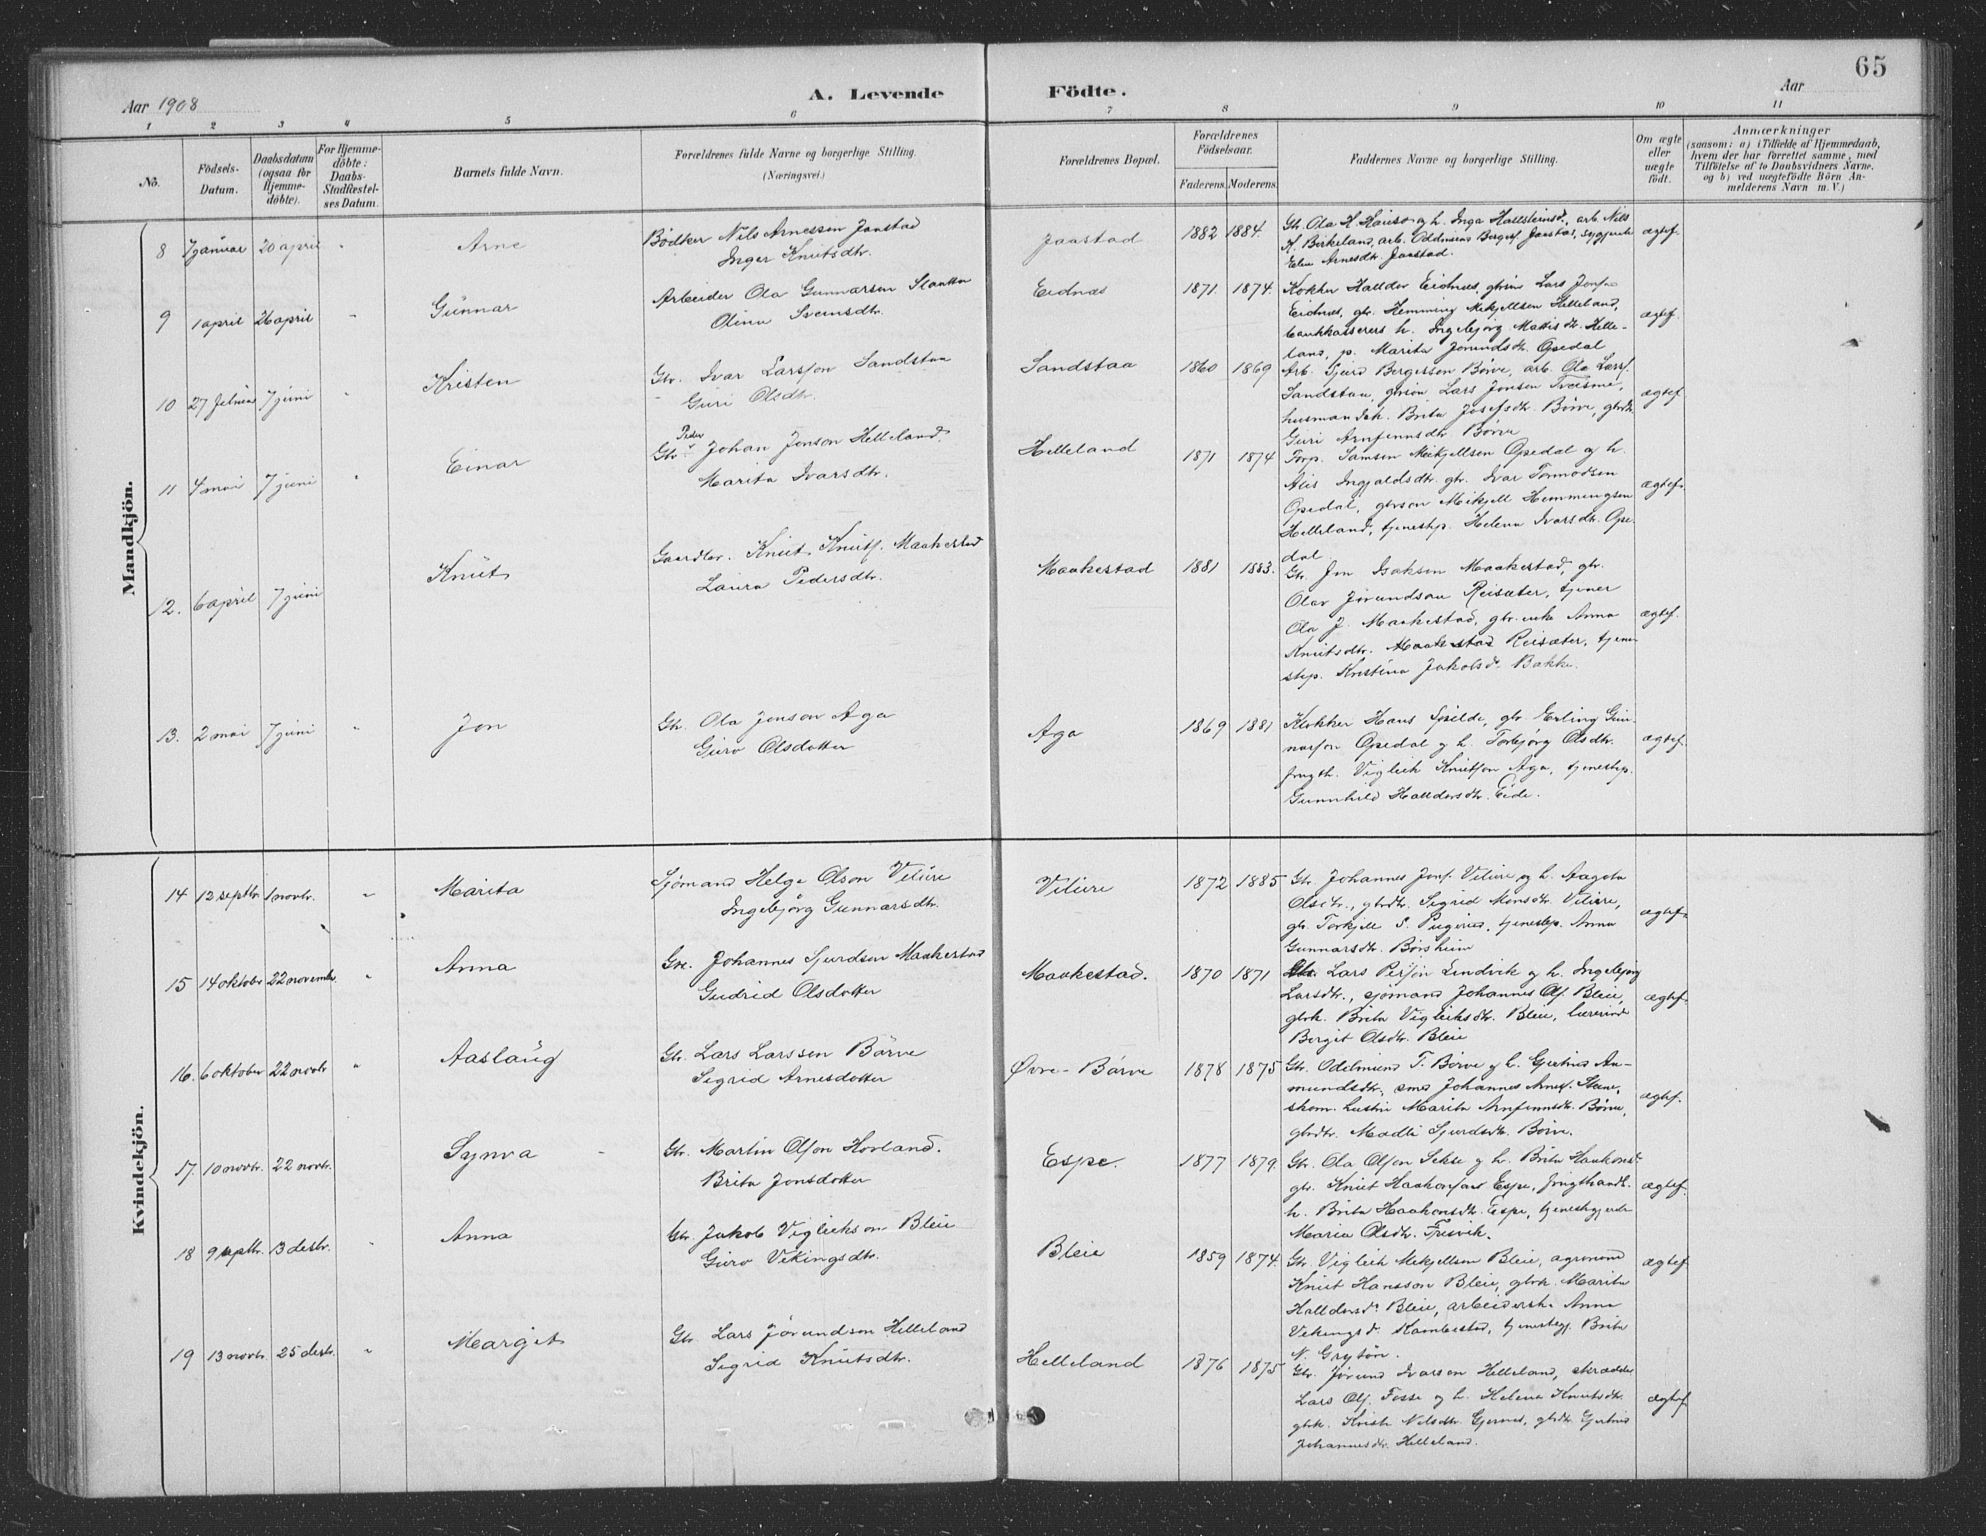 65
Aar 1908
A. Levende
Födte.
Aar
1 2 3 4 5 6 7 8 9 10 11
No.
Födsels-
Datum.
Daabsdatum
(ogsaa for
Hjemme-
döbte).
For Hjemme-
döbte:
Daabs-
Stadfæstel-
ses Datum.
Barnets fulde Navn.
Forældrenes fulde Navne og borgerlige Stilling.
(Næringsvei.)
Forældrenes Bopæl.
Forældrenes
Födselsaar.
Faderens. Moderens.
Faddernes Navne og borgerlige Stilling.
Om ægte
eller
uægte
födt.
Anmærkninger
(saasom: a) i Tilfælde af Hjemmedaab,
hvem der har forrettet samme, med
Tilföielse af to Daabsvidners Navne.
og b) ved uægtefödte Börn An-
melderens Navn m. V.)
Mandkjön.
8 7 januar 20 april " Arne
Bödker Nils Arnessen Jaastad
Inger Knutsdtr.
Jaastad 1882 1884.
Gbr. Ola H. Hauso og h. Inga Hallsteinsd. arb. Nils
H. Birkeland, arb. Oddmund Bergesf. Jaastad,
Elen Arnesdtr. Jaastad.
ægtef.
9 1 april 26 april " Gunnar
Arbeider Ola Gunnarsen
Olina Sveinsdtr.
Eidnæs 1871. 1874.
Kokken Halldor Eidnes, gbrsøn Lars Jonsen
Eidnæs, gbr. Hemming Mikjellsen Helleland,
bankkasserers h. Ingebjörg Mattisdtr. Helle-
land, p. Marita Jorundsdtr. Opedal
ægtef.
10 27 februar 7 juni " Kristen
Gbr. Ivar Larsson Sandstaa
Guri Olsdtr.
Sandstaa 1860 1869
Arb. Sjurd Bergesson Börve, arb. Ola Larsf.
Sandstaa, gbrsön Lars Jonsen Tveisme,
husmandsk. Brita Josefsdtr. Börve, gbrdtr.
Guri Arnfinnsdtr Börve
ægtef.
11 4 mai 7 juni " Einar
Peder
Gbr. v Johan Jonson Helleland.
Marita Ivarsdtr.
Helleland 1871 1874
Forp. Samson Mikjellsen Opedal og h.
Alis Ingjaldsdtr. gbr. Ivar Tormodsen
Opedal, gbrsön Mikjell Hemmingsen
Helleland, tjenestep. Helena Ivarsdtr. Ope-
dal.
ægtef.
12. 6 april 7 juni Knut
Gaardbr. Knut Knutf. Maakestad
Laura Pedersdtr.
Maakestad 1881 1883.
Gbr. Jon Isaksen Maakestad, gbr.
Olav Jørundsen Reisæter, tjener
Ola J. Maakestad, gbr. enke Anna
Knutsdtr. Maakestad Reisæter, tjene-
step. Kristina Jakobsd. Bakke.
ægtef.
13. 2 mai 7 juni " Jon
Gbr. Ola Jonson Aga
Guro Olsdotter
Aga 1869 1881
Klokker Hans Spilde, gbr Erling Gun-
narson Opedal og h. Torbjörg Olsdtr.
frugth. Vigleik Knutson Aga, tjenestep.
Gunnhild Halldorsdtr. Eide.
ægtef.
Kvindekjön.
14 12 septbr. 1 novbr. " Marita
Sjömand Helge Olson Vilure
Ingebjörg Gunnarsdtr.
Vilure 1872 1885
Gbr. Johannes Jonf. Vilure og h. Aagota
Olsdtr., gbrdtr. Sigrid Monsdtr. Vilure,
gbr. Torkjell S. tjenestep. Anna
Gunnarsdtr. Börsheim
ægtef.
15 14 oktober 22 november " Anna
Gbr. Johannes Sjurdsen Maakestad
Gudrid Olsdotter
Maakestad. 1870 1871
Gbr. Lars Person Lindvik og h. Ingebjörg
Larsdtr., sjömand Johannes Olf. Bleie,
gbrk. Brita Vigleiksdtr. Bleie, lærerinde
Bergit Olsdtr. Bleie
ægtef.
16. 6 oktober 22 novbr " Aaslaug
Gbr. Lars Larssen Börve
Sigrid Arnesdotter
Øvre-Börve 1878 1875
Gbr. Odelmund T. Börve og h. Gjertrud Aa-
mundsdtr, smed Johannes Arnef. Steine,
skom. hustru Marita Arnfinnsdtr. Börve,
gbrdtr. Madli Sjursdtr. Börve.
ægtef.
17. 10 novbr. 22 novbr. Synva
Gbr. Martin Olson Hovland.
Brita Jonsdotter
Espe. 1877 1879.
Gbr. Ola Olson Sekse og h. Brita Haakonsd.
gbr. Knut Haakonson Espe, frugthandl.
h. Brita Haakonsdtr. Espe, tjenestepige
Maria Olsdtr. Tresvik.
ægtef.
18 9 septbr. 13 desbr. Anna
Gbr. Jakob Vigleikson Bleie
Guro Vikingsdtr.
Bleie 1859 1874.
Gbr. Vigleik Mikjellsen Bleie, agronom
Knut Hansson Bleie, gbrk. Marita
Halldorsdr. Bleie, arbeidersk. Anna
Vikingsd. Kambestad, tjenestepg. Brita
N. Grytön.
ægtef.
19 13 novbr. 25 desbr. " Margit
Gbr. Lars Jørundson Helleland
Sigrid Knutsdtr.
Helleland 1876 1875
Gbr. Jørund Ivarsen Helleland, skrædder
Lars Olf. Fosse og h. Helena Knutsdtr.
gbrk. Kristi Nilsdtr. Gjernes, gbrdtr. Gjertrud
Johannesdtr. Helleland.
ægtef.